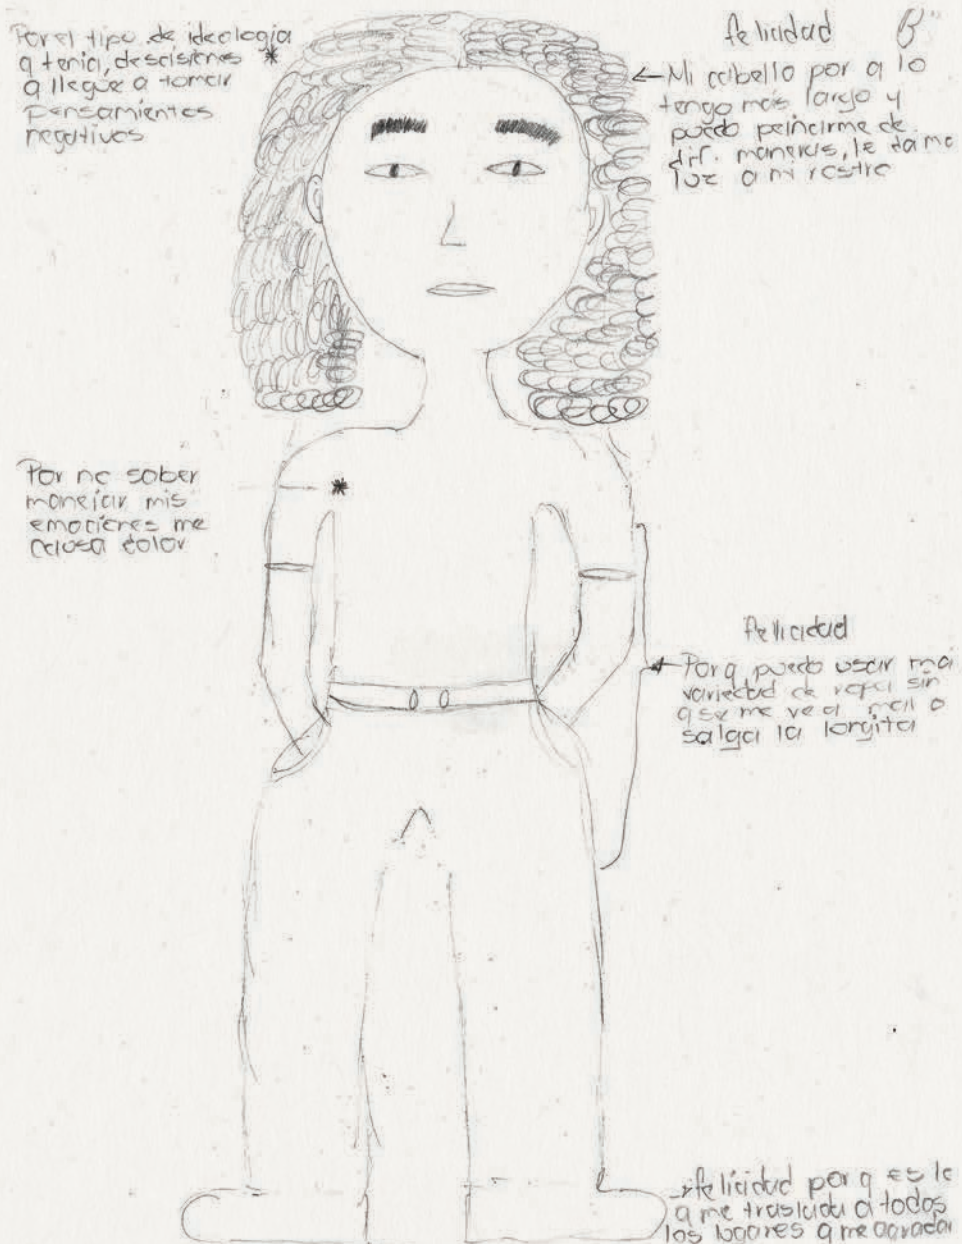 Por el tipo de ideología
q tenia, descisiones *
q llegue a tomar
pensamientos
negativos
felicidad B"
Mi cabello por q lo
tengo más largo y
puedo peinarme de
dif. maneras, le da mc
luz a mi rostro
Por no saber
manejar mis
emociones me
causa dolor
*
felicidad
Por q puedo usar ma
variedad de ropa sin
q se me vea mal o
salga la lonjita
felicidad por q es lo
q me traslada a todos
los lugares q me agradan